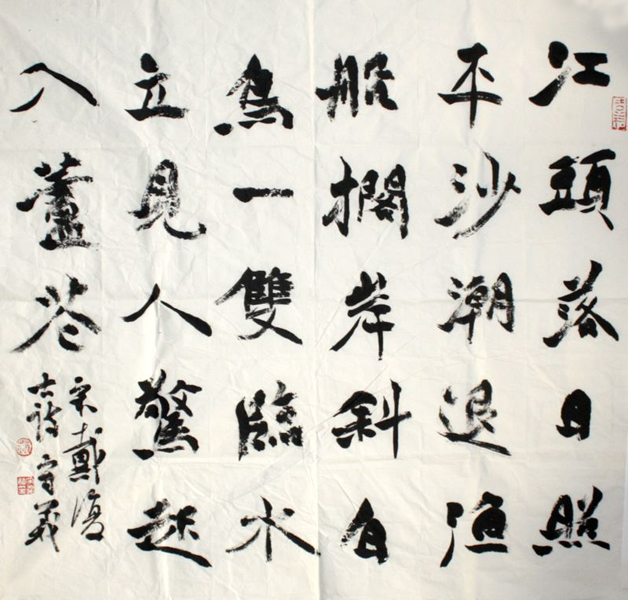 江頭落日照
平沙潮退漁
船擱岸斜白
鳥一雙臨水
立見人驚起
入蘆花
宋戴復
古詩 守義